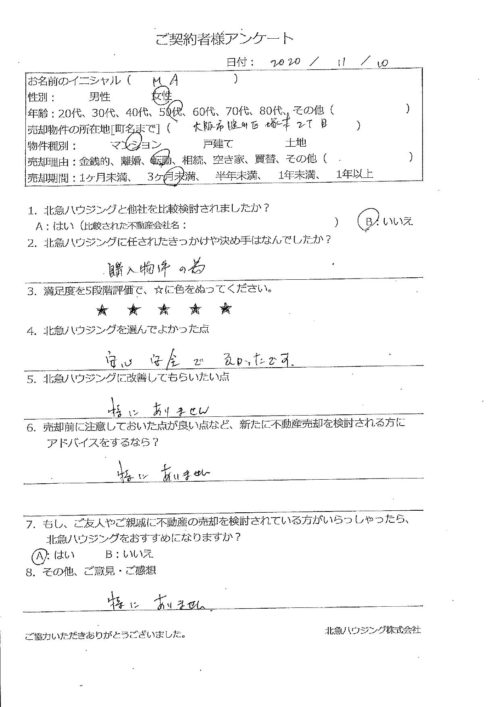 ご契約者様アンケート
日付： 2020 / 11 / 10
お名前のイニシャル（ M A ）
性別： 男性 女性
年齢：20代、30代、40代、50代、60代、70代、80代、その他（ ）
売却物件の所在地[町名まで]（ 大阪市淀川区 塚本 2丁目 ）
物件種別： マンション 戸建て 土地
売却理由：金銭的、離婚、転勤、相続、空き家、買替、その他（ ）
売却期間：1ヶ月未満、 3ヶ月未満、 半年未満、 1年未満、 1年以上
1. 北急ハウジングと他社を比較検討されましたか？
A：はい（比較された不動産会社名： ） B：いいえ
2. 北急ハウジングに任されたきっかけや決め手はなんでしたか？
購入物件の為
3. 満足度を5段階評価で、☆に色をぬってください。
★ ★ ★ ★ ★
4. 北急ハウジングを選んでよかった点
安心 安全で 良かったです。
5. 北急ハウジングに改善してもらいたい点
特に ありません
6. 売却前に注意しておいた点が良い点など、新たに不動産売却を検討される方に
アドバイスをするなら？
特に ありません
7. もし、ご友人やご親戚に不動産の売却を検討されている方がいらっしゃったら、
北急ハウジングをおすすめになりますか？
A：はい B：いいえ
8. その他、ご意見・ご感想
特に ありません。
ご協力いただきありがとうございました。 北急ハウジング株式会社